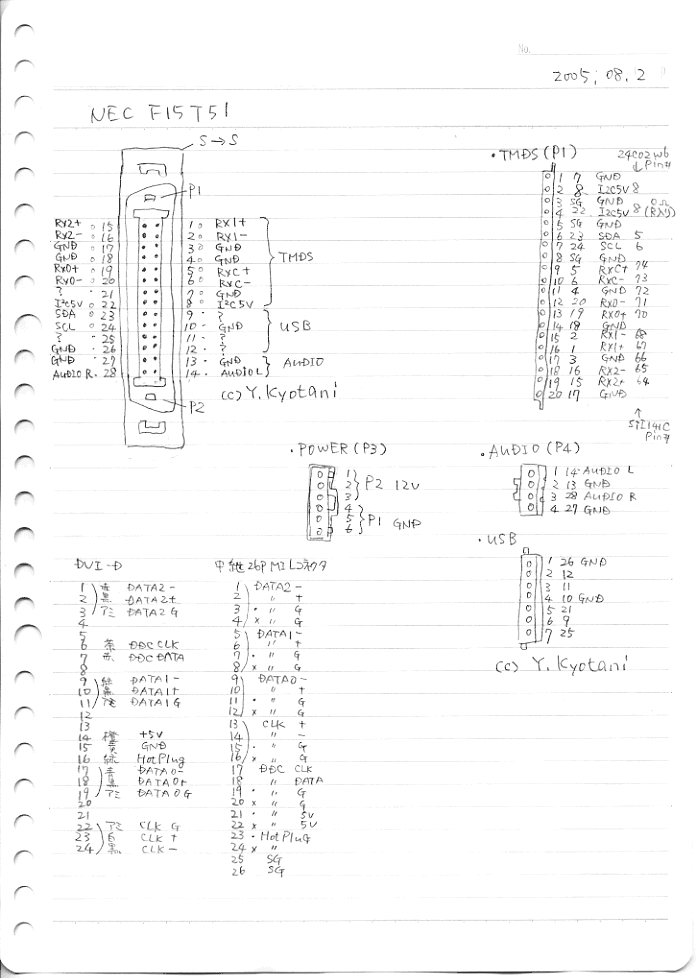 No.
2005, 08, 2
NEC F15T51
S→S
P1
RX2+ 15
RX2- 16
GND 17
GND 18
RX0+ 19
RX0- 20
? 21
I2C5V 22
SDA 23
SCL 24
? 25
GND 26
GND 27
AUDIO R. 28
1 RX1+
2 RX1-
3 GND
4 GND
5 RXC+
6 RXC-
7 GND
8 I2C5V
TMDS
9 ?
10 GND
11 ?
12 ?
USB
13 GND
14 AUDIO L
AUDIO
P2
(c) Y. Kyotani
・TMDS (P1)
24C02W6
↓ Pin#
1 7 GND
2 8 I2C5V 8
3 SG GND 0Ω
4 22 I2C5V 8 (R入り)
5 SG GND
6 23 SDA 5
7 24 SCL 6
8 SG GND
9 5 RXC+ 74
10 6 RXC- 73
11 4 GND 72
12 20 RX0- 71
13 19 RX0+ 70
14 18 GND
15 2 RX1- 68
16 1 RX1+ 67
17 3 GND 66
18 16 RX2- 65
19 15 RX2+ 64
20 17 GND
↑
SII141C
Pin#
・POWER (P3)
1
2
3
P2 12V
4
5
6
P1 GND
・AUDIO (P4)
1 14 AUDIO L
2 13 GND
3 28 AUDIO R
4 27 GND
・USB
1 26 GND
2 12
3 11
4 10 GND
5 21
6 9
7 25
(c) Y. Kyotani
DVI-D
1 赤 DATA2-
2 黒 DATA2+
3 アミ DATA2 G
4
5
6 茶 DDC CLK
7 赤 DDC DATA
8
9 緑 DATA1-
10 黒 DATA1+
11 アミ DATA1 G
12
13
14 橙 +5V
15 黄 GND
16 緑 HotPlug
17 青 DATA0-
18 黒 DATA0+
19 アミ DATA0 G
20
21
22 アミ CLK G
23 白 CLK +
24 黒 CLK -
中継26P MILコネクタ
1 DATA2-
2 〃 +
3 ・ 〃 G
4 × 〃 G
5 DATA1-
6 〃 +
7 ・ 〃 G
8 × 〃 G
9 DATA0-
10 〃 +
11 ・ 〃 G
12 × 〃 G
13 CLK +
14 〃 -
15 ・ 〃 G
16 × 〃 G
17 DDC CLK
18 〃 DATA
19 ・ 〃 G
20 × 〃 G
21 ・ 〃 5V
22 × 〃 5V
23 ・ HotPlug
24 × 〃
25 SG
26 SG